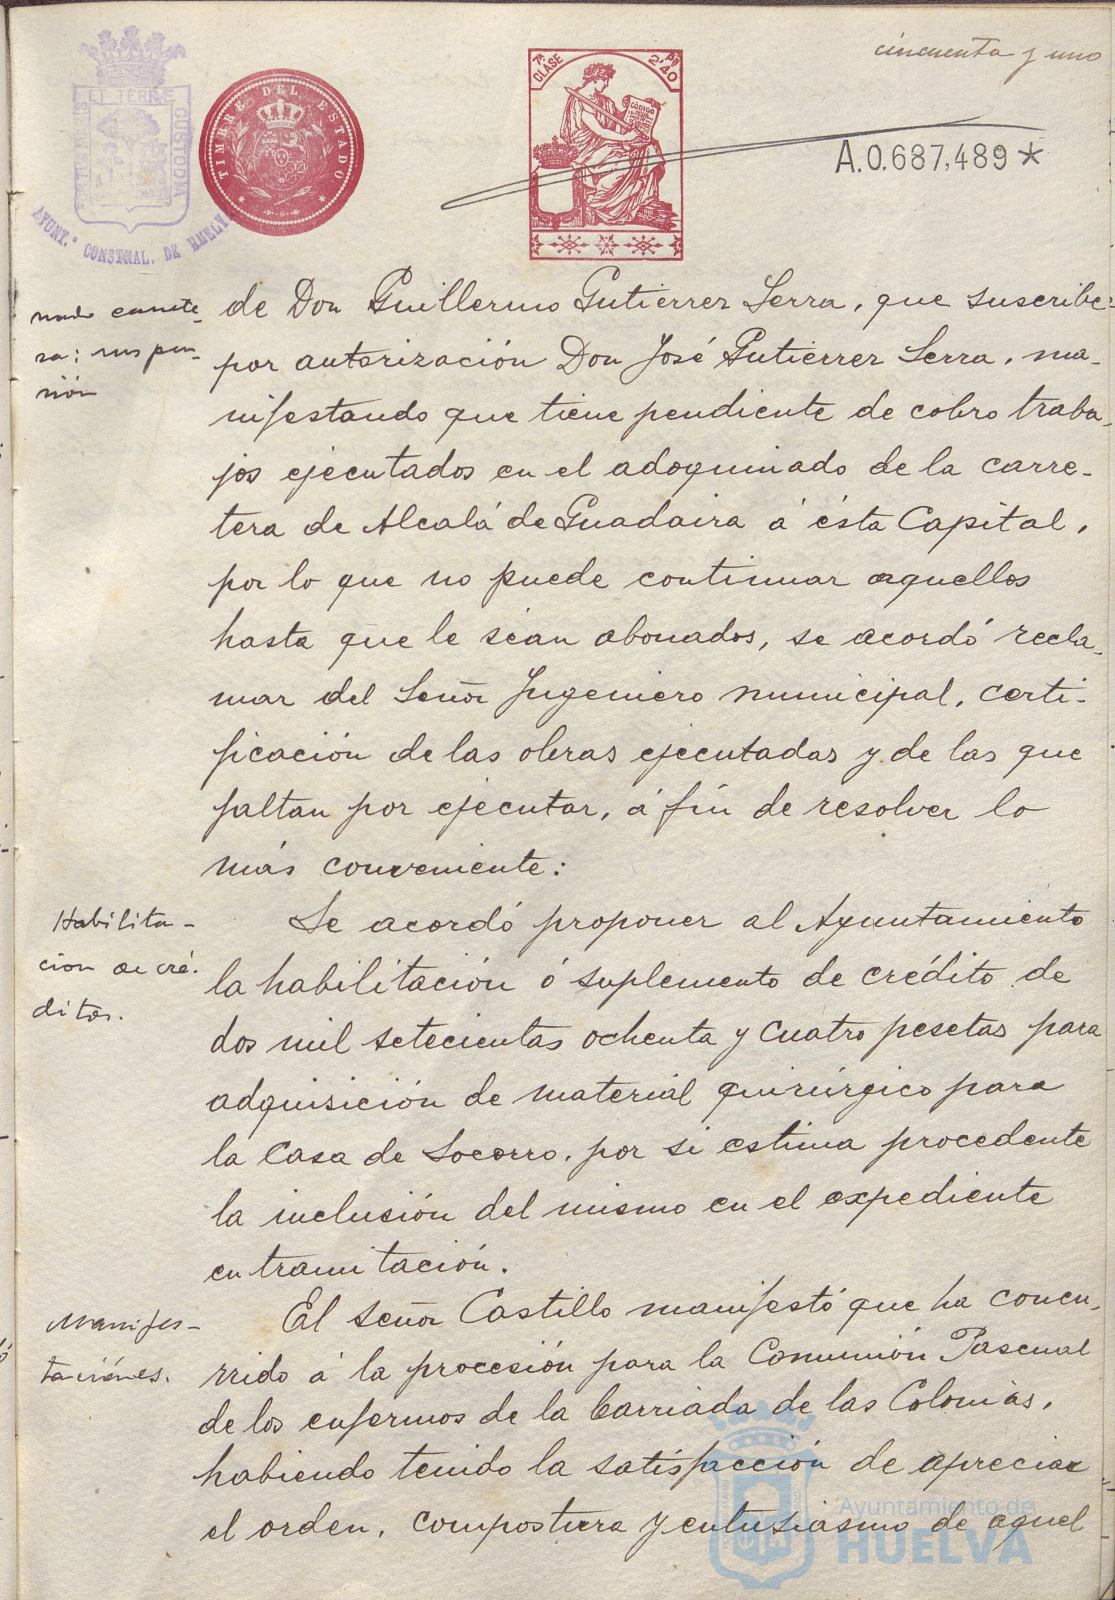 cincuenta y uno
PORTUS MARIS ET TERRE CUSTODIA
AYUNT.º CONSTNAL. DE HUELVA
TIMBRE DEL ESTADO
7ª CLASE
2'40
CODIGO
A.0.687,489*
nado carrete-
ra: suspen-
sión
de Don Guillermo Gutierrez Serra, que suscribe
por autorización Don José Gutierrez Serra, ma-
nifestando que tiene pendiente de cobro traba-
jos ejecutados en el adoquinado de la carre-
tera de Alcalá de Guadaira á ésta Capital,
por lo que no puede continuar aquellos
hasta que le sean abonados, se acordó recla-
mar del Señor Ingeniero municipal, certi-
ficación de las obras ejecutadas y de las que
faltan por ejecutar, á fin de resolver lo
más conveniente:
Habilita-
cion de cré-
ditos.
Se acordó proponer al Ayuntamiento
la habilitación ó suplemento de crédito de
dos mil setecientas ochenta y cuatro pesetas para
adquisición de material quirúrgico para
la Casa de Socorro, por si estima procedente
la inclusión del mismo en el expediente
en tramitación.
Manifes-
taciónes.
El señor Castillo manifestó que ha concu-
rrido á la procesión para la Comunión Pascual
de los enfermos de la barriada de las Colonias,
habiendo tenido la satisfacción de apreciar
el orden, compostura y entusiasmo de aquel
Ayuntamiento de
HUELVA